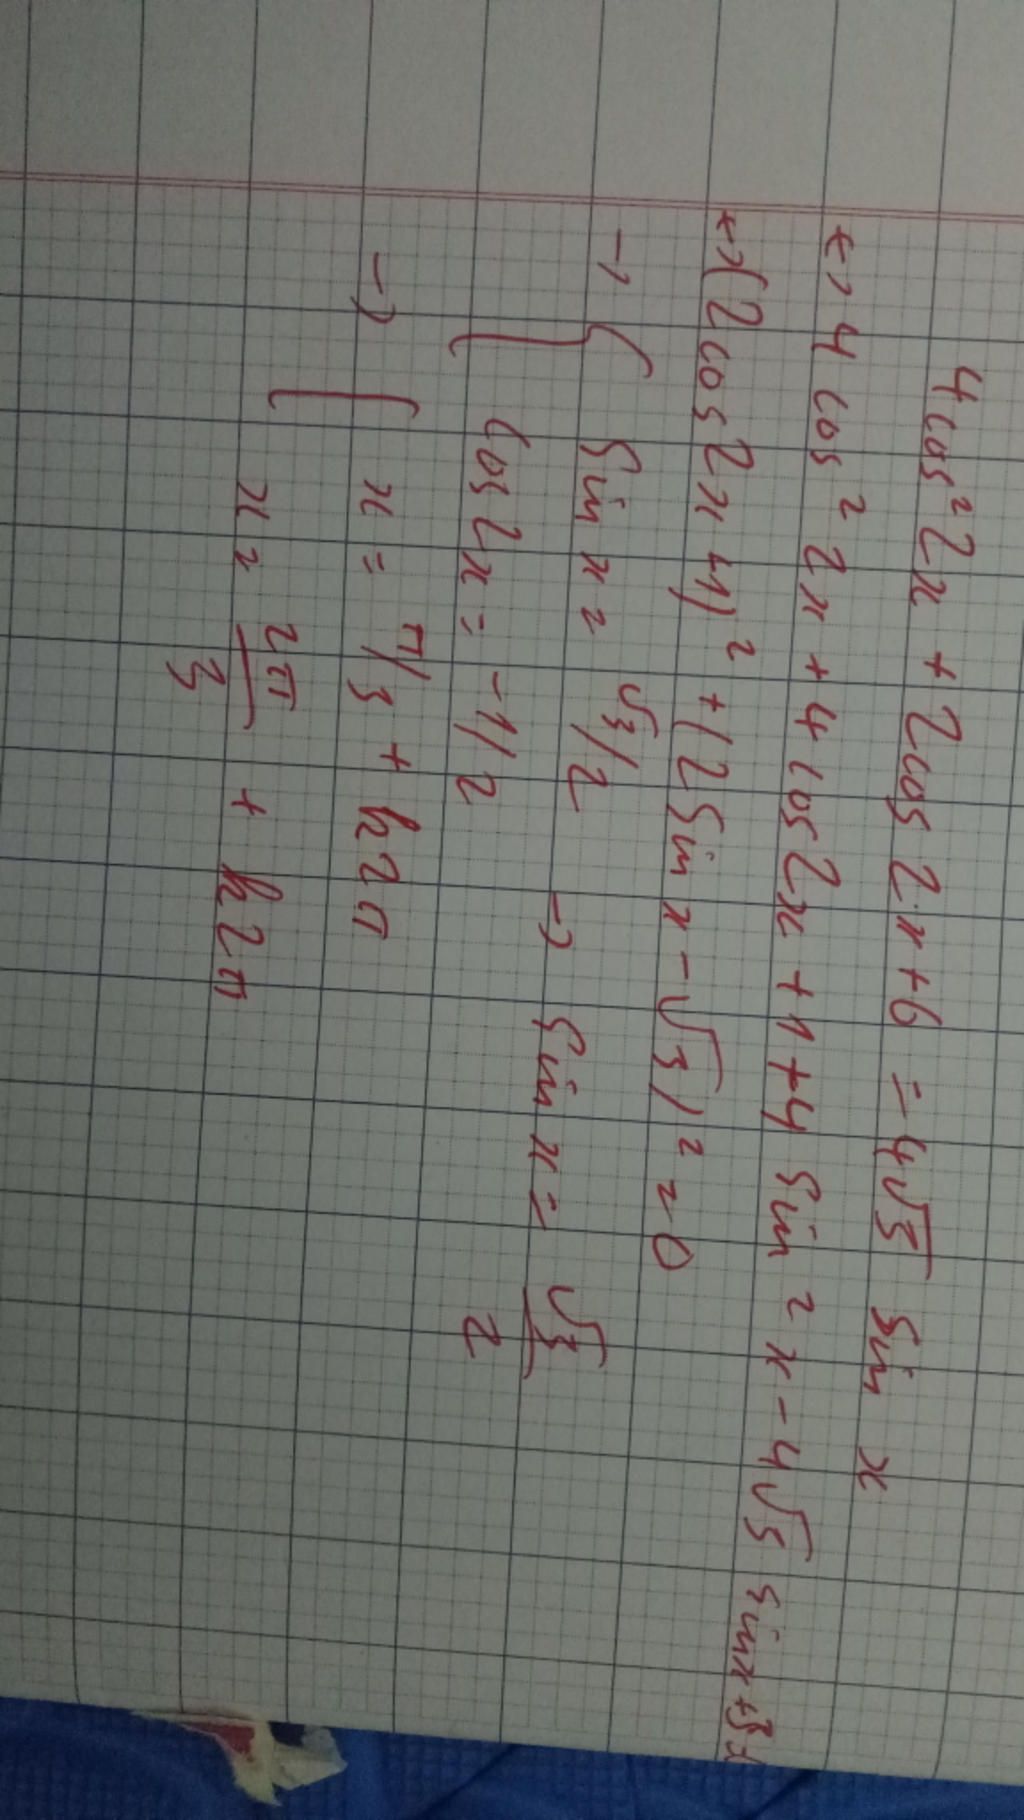 4cos²2x + 2cos2x+6 = 4√3 sin x
↔ 4cos²2x + 4cos2x +1+4 sin²x - 4√3 sinx +3=
↔ (2cos2x +1)² + (2sin x - √3)² = 0
→ { sin x = √3/2 → sin x = √3/2
cos2x = -1/2
→ [ x = π/3 + k2π
x = 2π/3 + k2π